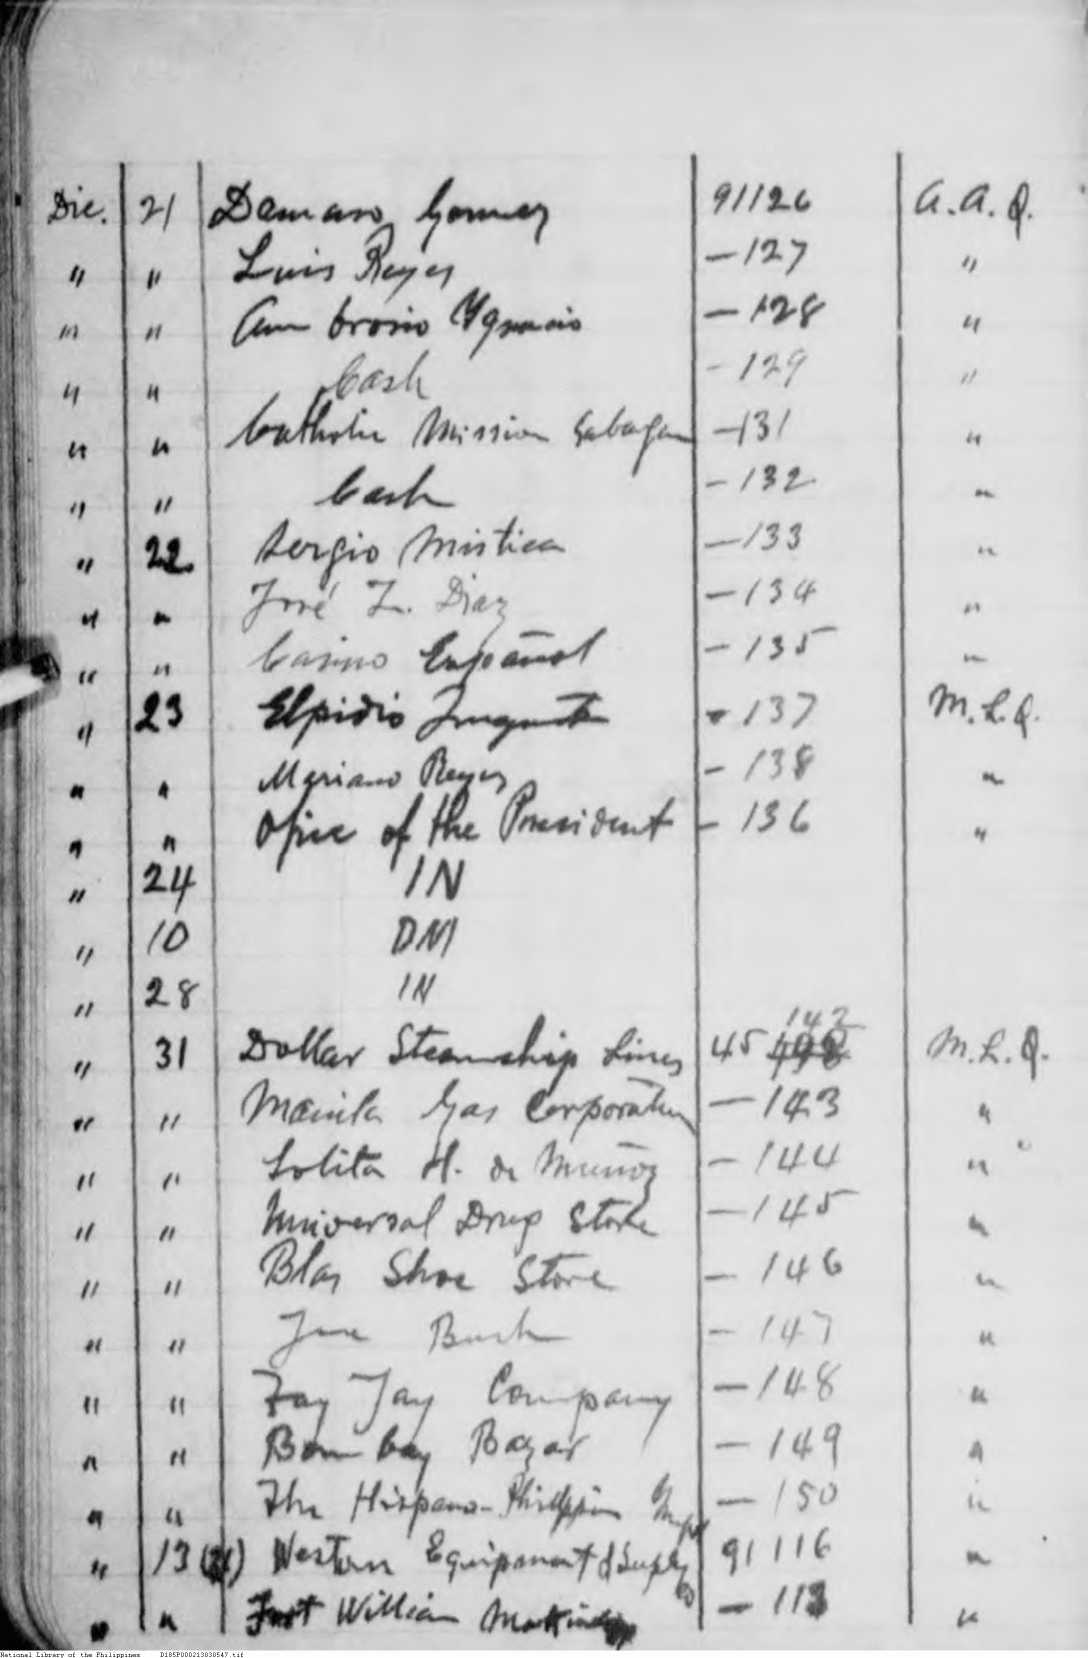 Dic. 21 Damaso Gomez 91126 A. A. Q.
" " Luis Reyes — 127 "
" " Ambrosio Ygnacio — 128 "
" " Cash - 129 "
" " Catholic Mission Sabagan — 131 "
" " Cash - 132 "
" 22 Sergio Mistica — 133 "
" " José L. Diaz — 134 "
" " Casino Español - 135 "
" 23 Elpidio - 137 M. L. Q.
" " Mariano Reyes - 138 "
" " Ofice of the President - 136 "
" 24 IN
" 10 DM
" 28 IN
" 31 Dollar Steamship Lines 45 142 M. L. Q.
" " Manila Gas Corporation — 143 "
" " Lolita H. de Muñoz - 144 "
" " Universal Drug Store — 145 "
" " Blas Shoe Store - 146 "
" " Bush - 147 "
" " Jay Company — 148 "
" " Bombay Bazar — 149 "
" " The Hispano-Philippine — 150 "
" 13 Western Equipment & Supply Co 91116 "
" " Fort William McKinley — "
National Library of the Philippines D185P000213030547.tif